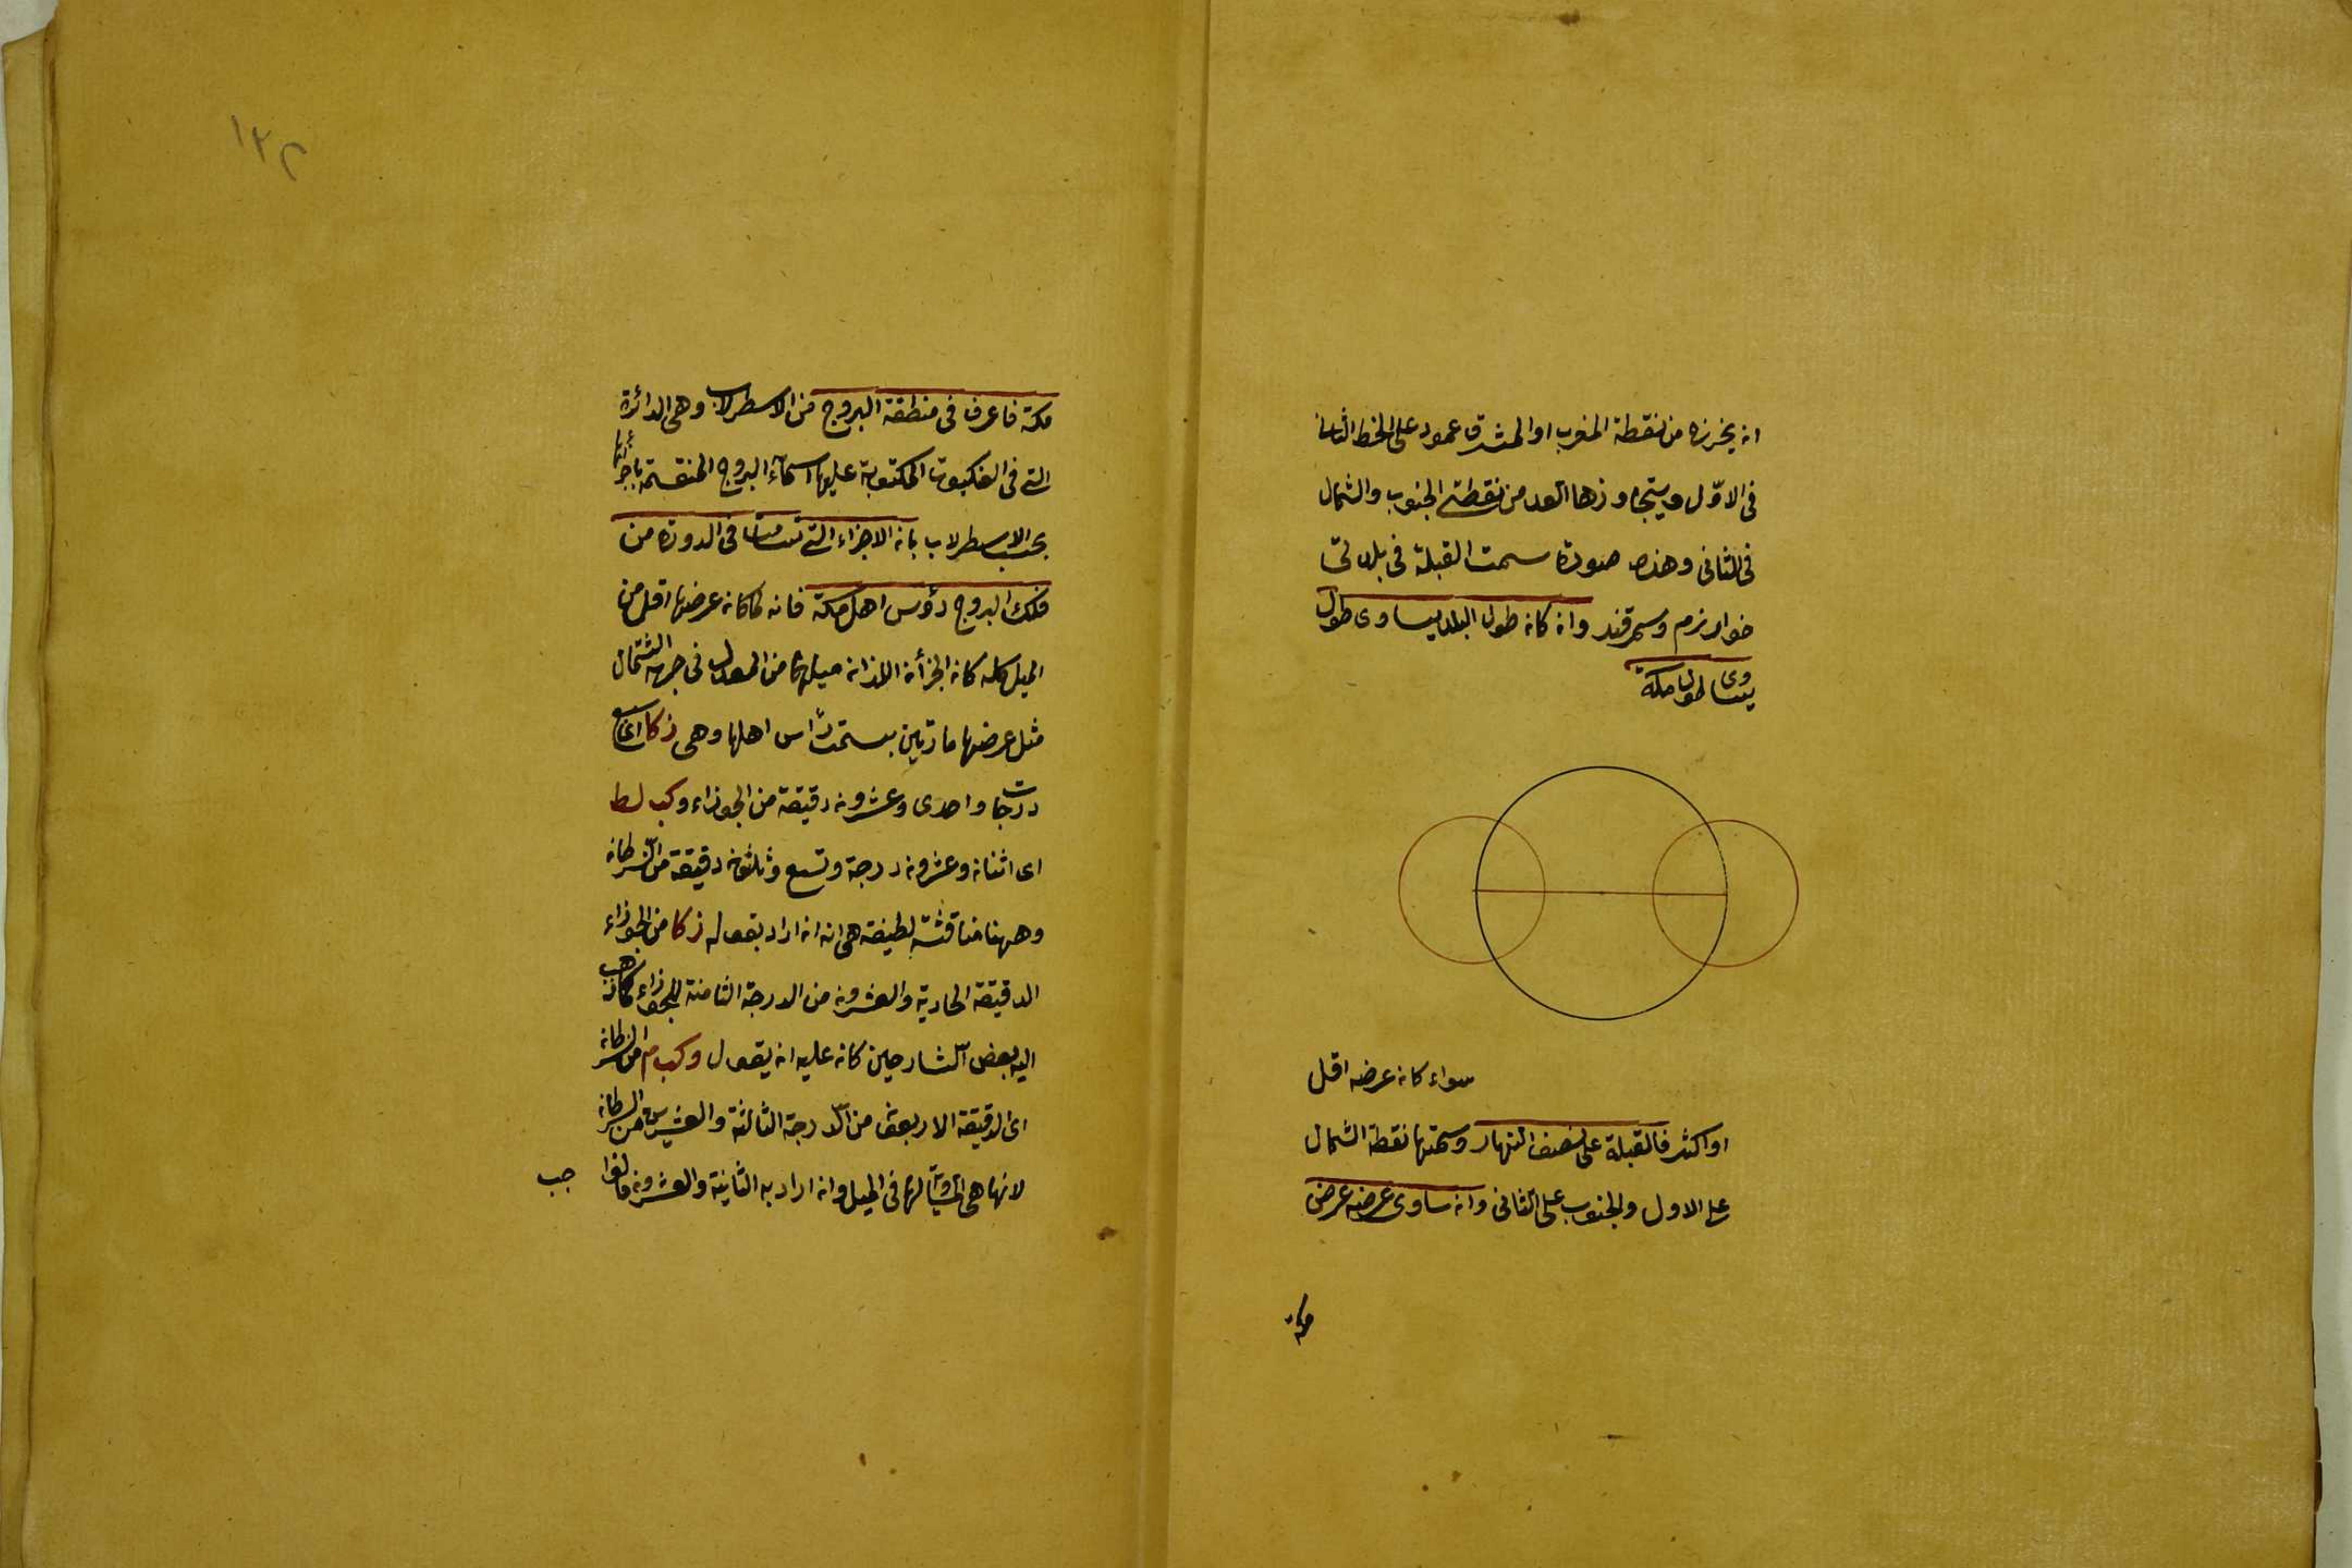 ان يخرج من نقطة المغرب او المشرق عمود على الخط الثانى
فى الاول ويتجاوزها البعد من نقطتى الجنوب والشمال
فى الثانى وهذه صورة سمت القبلة فى بلدتى
خوارزم وسمرقند وان كان طول البلد يساوى طول
يساوى طول مكة
سواء كان عرضه اقل
او اكثر فالقبلة على نصف النهار وسمتها نقطة الشمال
على الاول والجنوب على الثانى وان ساوى عرضه عرض
مكة
١٢٢
مكة فاعرف فى منطقة البروج من الاسطرلاب وهى الدائرة
التى فى العنكبوت المكتوبة عليها اسمآء البروج المنقسمة باجزائها
بحسب الاسطرلاب بان الاجزاء التى تسامت فى الدورة من
فلك البروج رؤس اهل مكة فانه لما كان عرضها اقل من
الميل كله كان الجزأن اللذان ميلهما من المعدل فى جهة الشمال
مثل عرضها مارين بسمت رأس اهلها وهى زكا اى سبع
درجات واحدى وعشرون دقيقة من الجوزاء وكب لط
اى اثنان وعشرون درجة وتسع وثلثون دقيقة من السرطان
وههنا مناقشة لطيفة هى انه ان اراد بقوله زكا من الجوزاء
الدقيقة الحادية والعشرون من الدرجة الثامنة للجوزاء كما ذهب
اليه بعض الشارحين كان عليه ان يقول وكب م من السرطان
اى الدقيقة الاربعون من الدرجة الثالثة والعشرين من السرطان
لانها هى المساوية لها فى الميل وان اراد به الثانية والعشرون